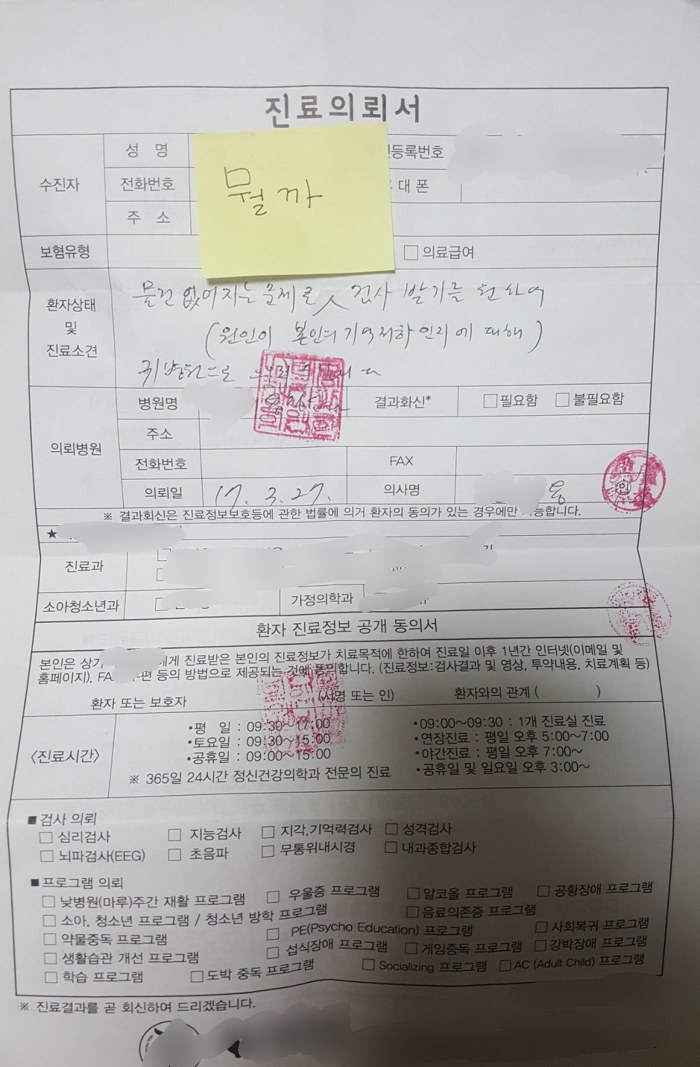 진료의뢰서
수진자
성 명
등록번호
전화번호
대폰
주 소
뭘까
보험유형
□ 의료급여
환자상태 및 진료소견
물건 없어지는 문제로 검사 받기를 원하여
(원인이 본인의 기억저하인지에 대해)
귀병원으로
의뢰병원
병원명
결과회신* □ 필요함 □ 불필요함
주소
전화번호
FAX
의뢰일 17. 3. 27. 의사명
인
※ 결과회신은 진료정보보호등에 관한 법률에 의거 환자의 동의가 있는 경우에만 능합니다.
★
진료과
소아청소년과
가정의학과
환자 진료정보 공개 동의서
본인은 상기 에게 진료받은 본인의 진료정보가 치료목적에 한하여 진료일 이후 1년간 인터넷(이메일 및
홈페이지), FA 편 등의 방법으로 제공되는 것에 동의합니다. (진료정보:검사결과 및 영상, 투약내용, 치료계획 등)
환자 또는 보호자 (서명 또는 인) 환자와의 관계 ( )
〈진료시간〉
•평 일 : 09:30~17:00
•토요일 : 09:30~15:00
•공휴일 : 09:00~15:00
•09:00~09:30 : 1개 진료실 진료
•연장진료 : 평일 오후 5:00~7:00
•야간진료 : 평일 오후 7:00~
•공휴일 및 일요일 오후 3:00~
※ 365일 24시간 정신건강의학과 전문의 진료
■ 검사 의뢰
□ 심리검사 □ 지능검사 □ 지각,기억력검사 □ 성격검사
□ 뇌파검사(EEG) □ 초음파 □ 무통위내시경 □ 내과종합검사
■ 프로그램 의뢰
□ 낮병원(마루)주간 재활 프로그램 □ 우울증 프로그램 □ 알코올 프로그램 □ 공황장애 프로그램
□ 소아, 청소년 프로그램 / 청소년 방학 프로그램 □ 음료의존증 프로그램
□ 약물중독 프로그램 □ PE(Psycho Education) 프로그램 □ 사회복귀 프로그램
□ 생활습관 개선 프로그램 □ 섭식장애 프로그램 □ 게임중독 프로그램 □ 강박장애 프로그램
□ 학습 프로그램 □ 도박 중독 프로그램 □ Socializing 프로그램 □ AC (Adult Child) 프로그램
※ 진료결과를 곧 회신하여 드리겠습니다.